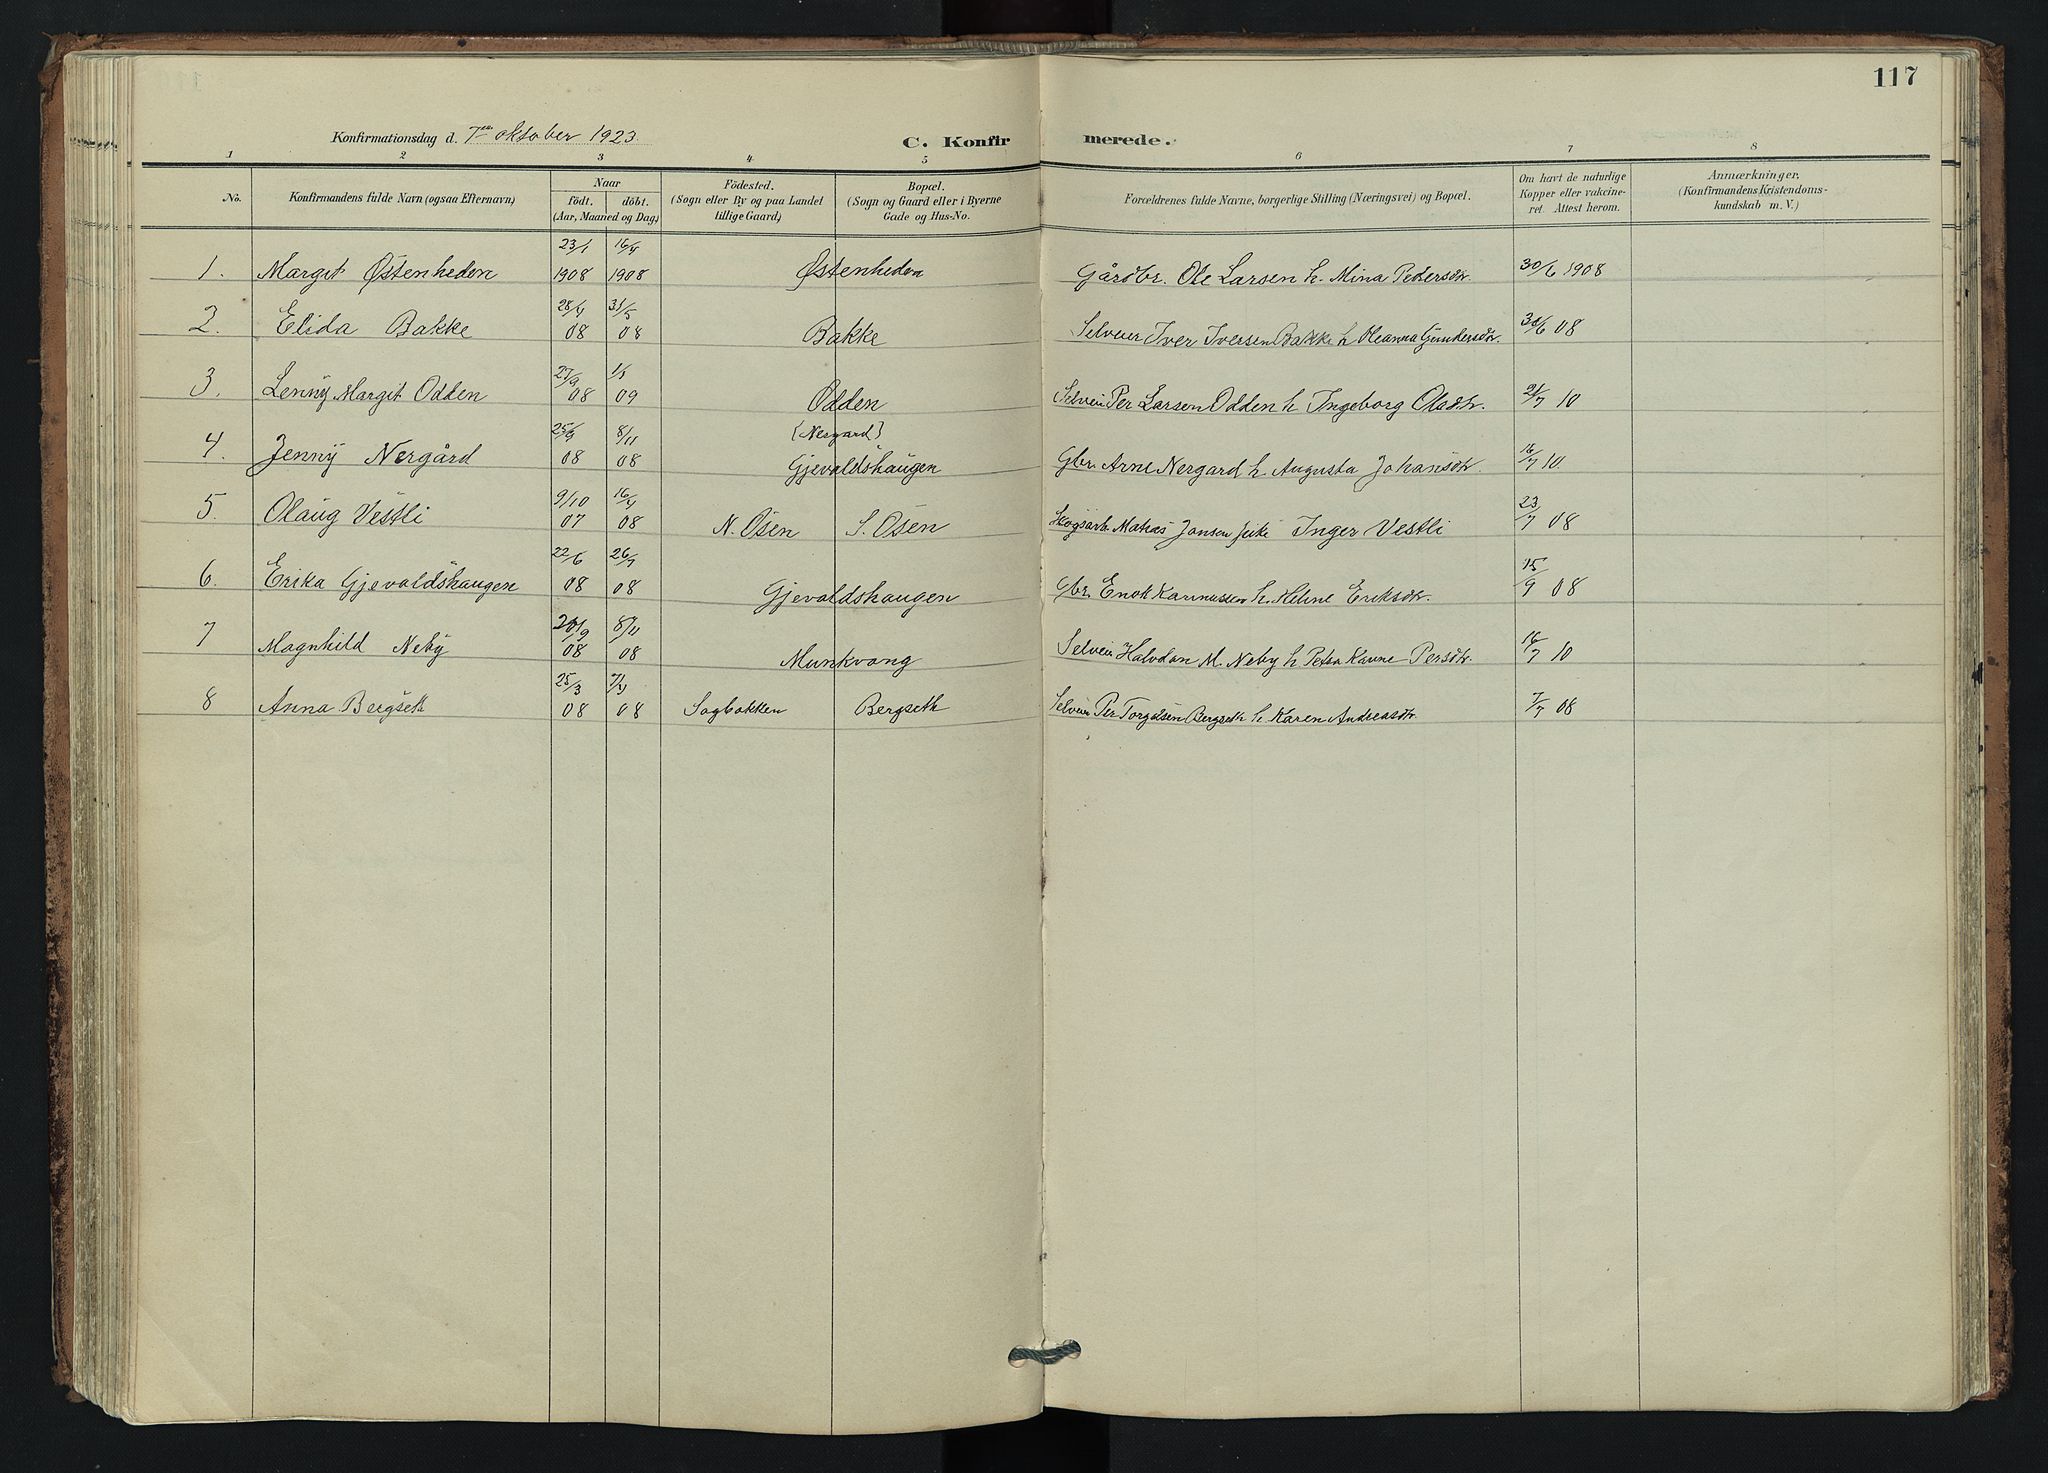 117
Konfirmationsdag d. 7de oktober 1923.
C. Konfirmerede.
1 2 3 4 5 6 7 8
No.
Konfirmandens fulde Navn (ogsaa Efternavn)
Naar
födt. döbt.
(Aar, Maaned og Dag)
Födested.
(Sogn eller By og paa Landet
tillige Gaard)
Bopæl.
(Sogn og Gaard eller i Byerne
Gade og Hus-No.
Forældrenes fulde Navne, borgerlige Stilling (Næringsvei) og Bopæl.
Om havt de naturlige
Kopper eller vakcine-
ret. Attest herom.
Anmærkninger.
(Konfirmandens Kristendoms-
kundskab m. V.)
1. Margit Østenheden 23/1 1908 16/4 1908 Østenheden Gårdbr. Ole Larsen h. Mina Pedersdtr. 30/6 1908
2. Elida Bakke 28/4 08 31/5 08 Bakke Selveier Iver Iversen Bakke h Oleanna Gundersdtr. 30/6 08
3. Lenny Margit Odden 27/9 08 1/1 09 Odden Selveier Per Larsen Odden h Ingeborg Olsdtr. 21/7 10
4. Jenny Nergård 25/9 08 8/11 08 (Nergard) Gjevaldshaugen Gbr. Arne Nergard h Augusta Johansdtr. 16/7 10.
5. Olaug Vestli 9/10 07 16/4 08 N. Osen S. Osen Skogsarb. Matias Jansen Inger Vestli 23/7 08
6. Erika Gjevaldshaugen 22/6 08 26/7 08 Gjevaldshaugen Gbr. Enok Rasmussen h. Helene Eriksdtr. 15/9 08
7 Magnhild Neby 20/9 08 8/11 08 Munkvang Selveier Halvdan M. Neby h Petra Karine Persdtr. 16/7 10
8 Anna Bergseth 25/3 08 08 Sagbakken Bergseth Selveier Per Torgalsen Bergseth h Karen Andreasdtr. 7/7 08